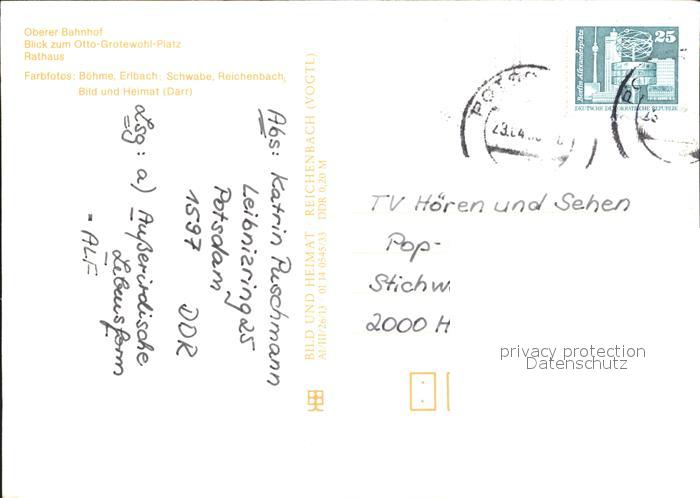 Oberer Bahnhof
Blick zum Otto-Grotewohl-Platz
Rathaus
Farbfotos: Böhme, Erlbach; Schwabe, Reichenbach,
Bild und Heimat (Darr)
Abs: Katrin Puschmann
Leibnizring 25
Potsdam
1597 DDR
Lsg: a) Außerirdische
Lebensform
= ALF
BILD UND HEIMAT REICHENBACH (VOGTL)
A1/III/26/13 01 14 0545/33 DDR 0,20 M
Berlin, Alexanderplatz
25
DEUTSCHE DEMOKRATISCHE REPUBLIK
POTSD
TV Hören und Sehen
Pop-
Stichw
2000 H
privacy protection
Datenschutz